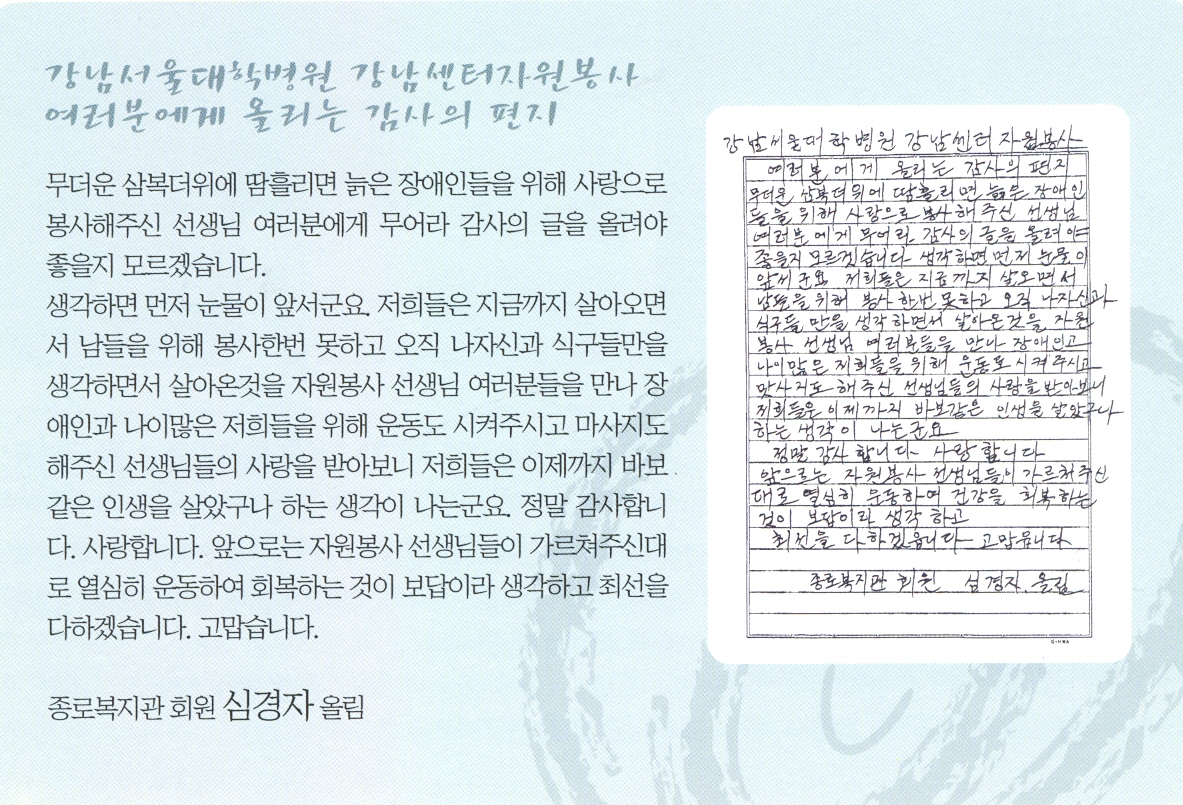 강남서울대학병원 강남센터자원봉사
여러분에게 올리는 감사의 편지
무더운 삼복더위에 땀흘리면 늙은 장애인들을 위해 사랑으로
봉사해주신 선생님 여러분에게 무어라 감사의 글을 올려야
좋을지 모르겠습니다.
생각하면 먼저 눈물이 앞서군요. 저희들은 지금까지 살아오면
서 남들을 위해 봉사한번 못하고 오직 나자신과 식구들만을
생각하면서 살아온것을 자원봉사 선생님 여러분들을 만나 장
애인과 나이많은 저희들을 위해 운동도 시켜주시고 마사지도
해주신 선생님들의 사랑을 받아보니 저희들은 이제까지 바보
같은 인생을 살았구나 하는 생각이 나는군요. 정말 감사합니
다. 사랑합니다. 앞으로는 자원봉사 선생님들이 가르쳐주신대
로 열심히 운동하여 회복하는 것이 보답이라 생각하고 최선을
다하겠습니다. 고맙습니다.
종로복지관 회원 심경자 올림
강남서울대학병원 강남센터 자원봉사
여러분에게 올리는 감사의 편지
무더운 삼복더위에 땀흘리면 늙은 장애인
들을 위해 사랑으로 봉사해주신 선생님
여러분에게 무어라 감사의 글을 올려야
좋을지 모르겠습니다 생각하면 먼저 눈물이
앞서군요 저희들은 지금까지 살오면서
남들을 위해 봉사한번 못하고 오직 나자신과
식구들 만을 생각하면서 살아온것을 자원
봉사 선생님 여러분들을 만나 장애인고
나이많은 저희들을 위해 운동도 시켜주시고
맛사지도 해주신 선생님들의 사랑을 받아보니
저희들은 이제까지 바보같은 인생을 살았구나
하는 생각이 나는군요
정말 감사합니다 사랑합니다
앞으로는 자원봉사 선생님들이 가르쳐주신
대로 열심히 운동하여 건강을 회복하는
것이 보답이라 생각하고
최선을 다하겠읍니다 고맙읍니다
종로복지관 회원 심경자 올림